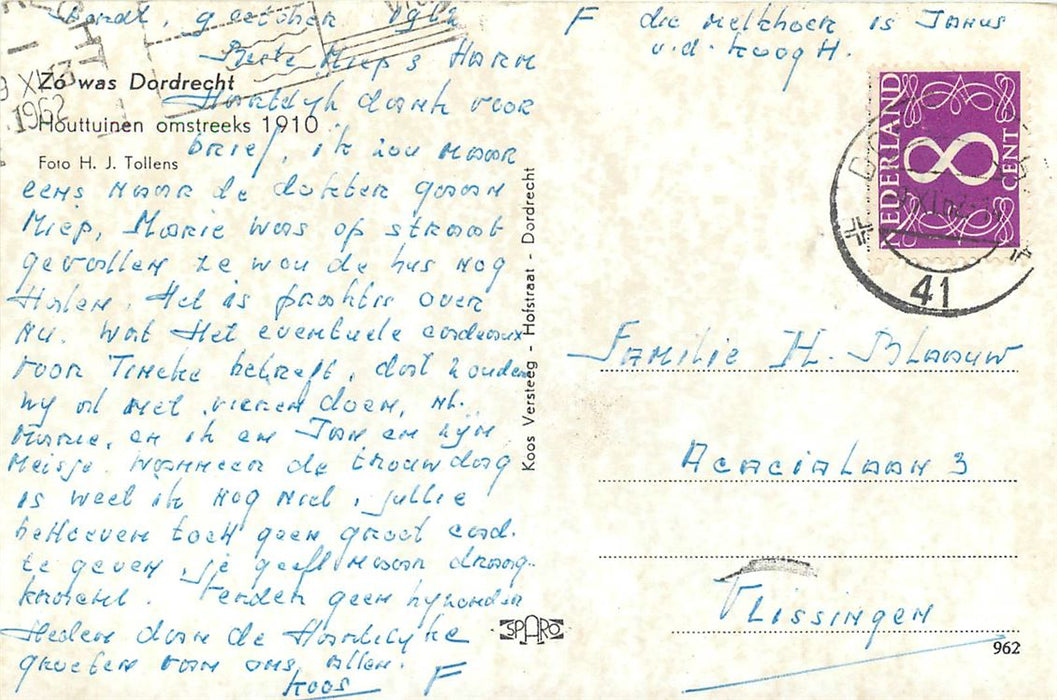 9 december 1962
Beste Miep & Harm
Hartelijk dank voor
brief, ik zou maar
eens naar de dokter gaan
Miep, Marie was op straat
gevallen ze wou de bus nog
Halen. Het is prachtig over
Nu. Wat Het eventuele cadeaux
voor Tineke betreft, dat zouden
wij al met vieren doen, Nl.
Marie, en ik en Jan en zijn
Meisje. Wanneer de trouwdag
is weet ik nog niet, jullie
behoeven toch geen groot cad.
te geven, je geeft maar draag-
krachtl. Verder geen byzonder
Heden dan de Hartelijke
groeten van ons allen.
Koos F
F die melkboer is Janus
v.d. Koogh.
Zó was Dordrecht
Houttuinen omstreeks 1910
Foto H. J. Tollens
9 XII
1962
Koos Versteeg - Hofstraat - Dordrecht
NEDERLAND
8
CENT
41
Familie H. Blaauw
Acacialaan 3
Vlissingen
SPARO
962